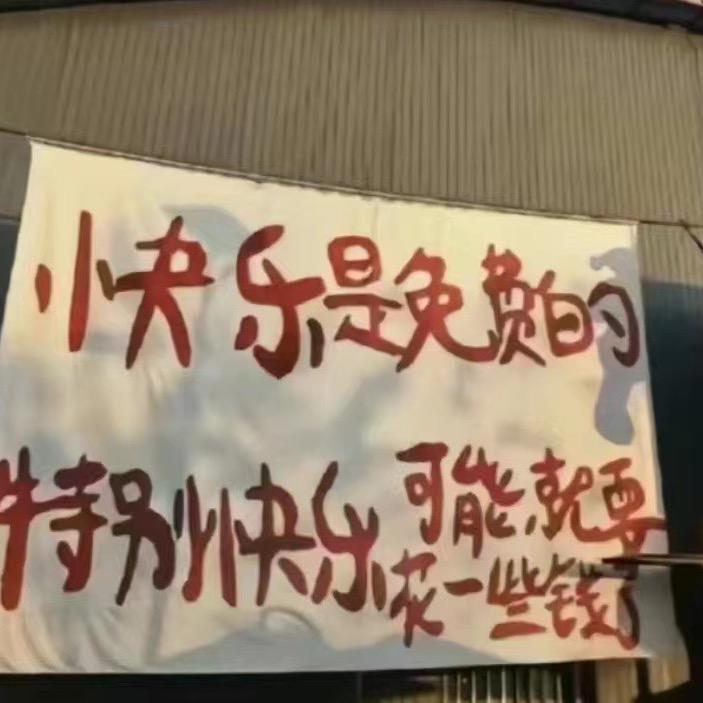 快乐是免费的
特别快乐
可能就要
花一些钱了